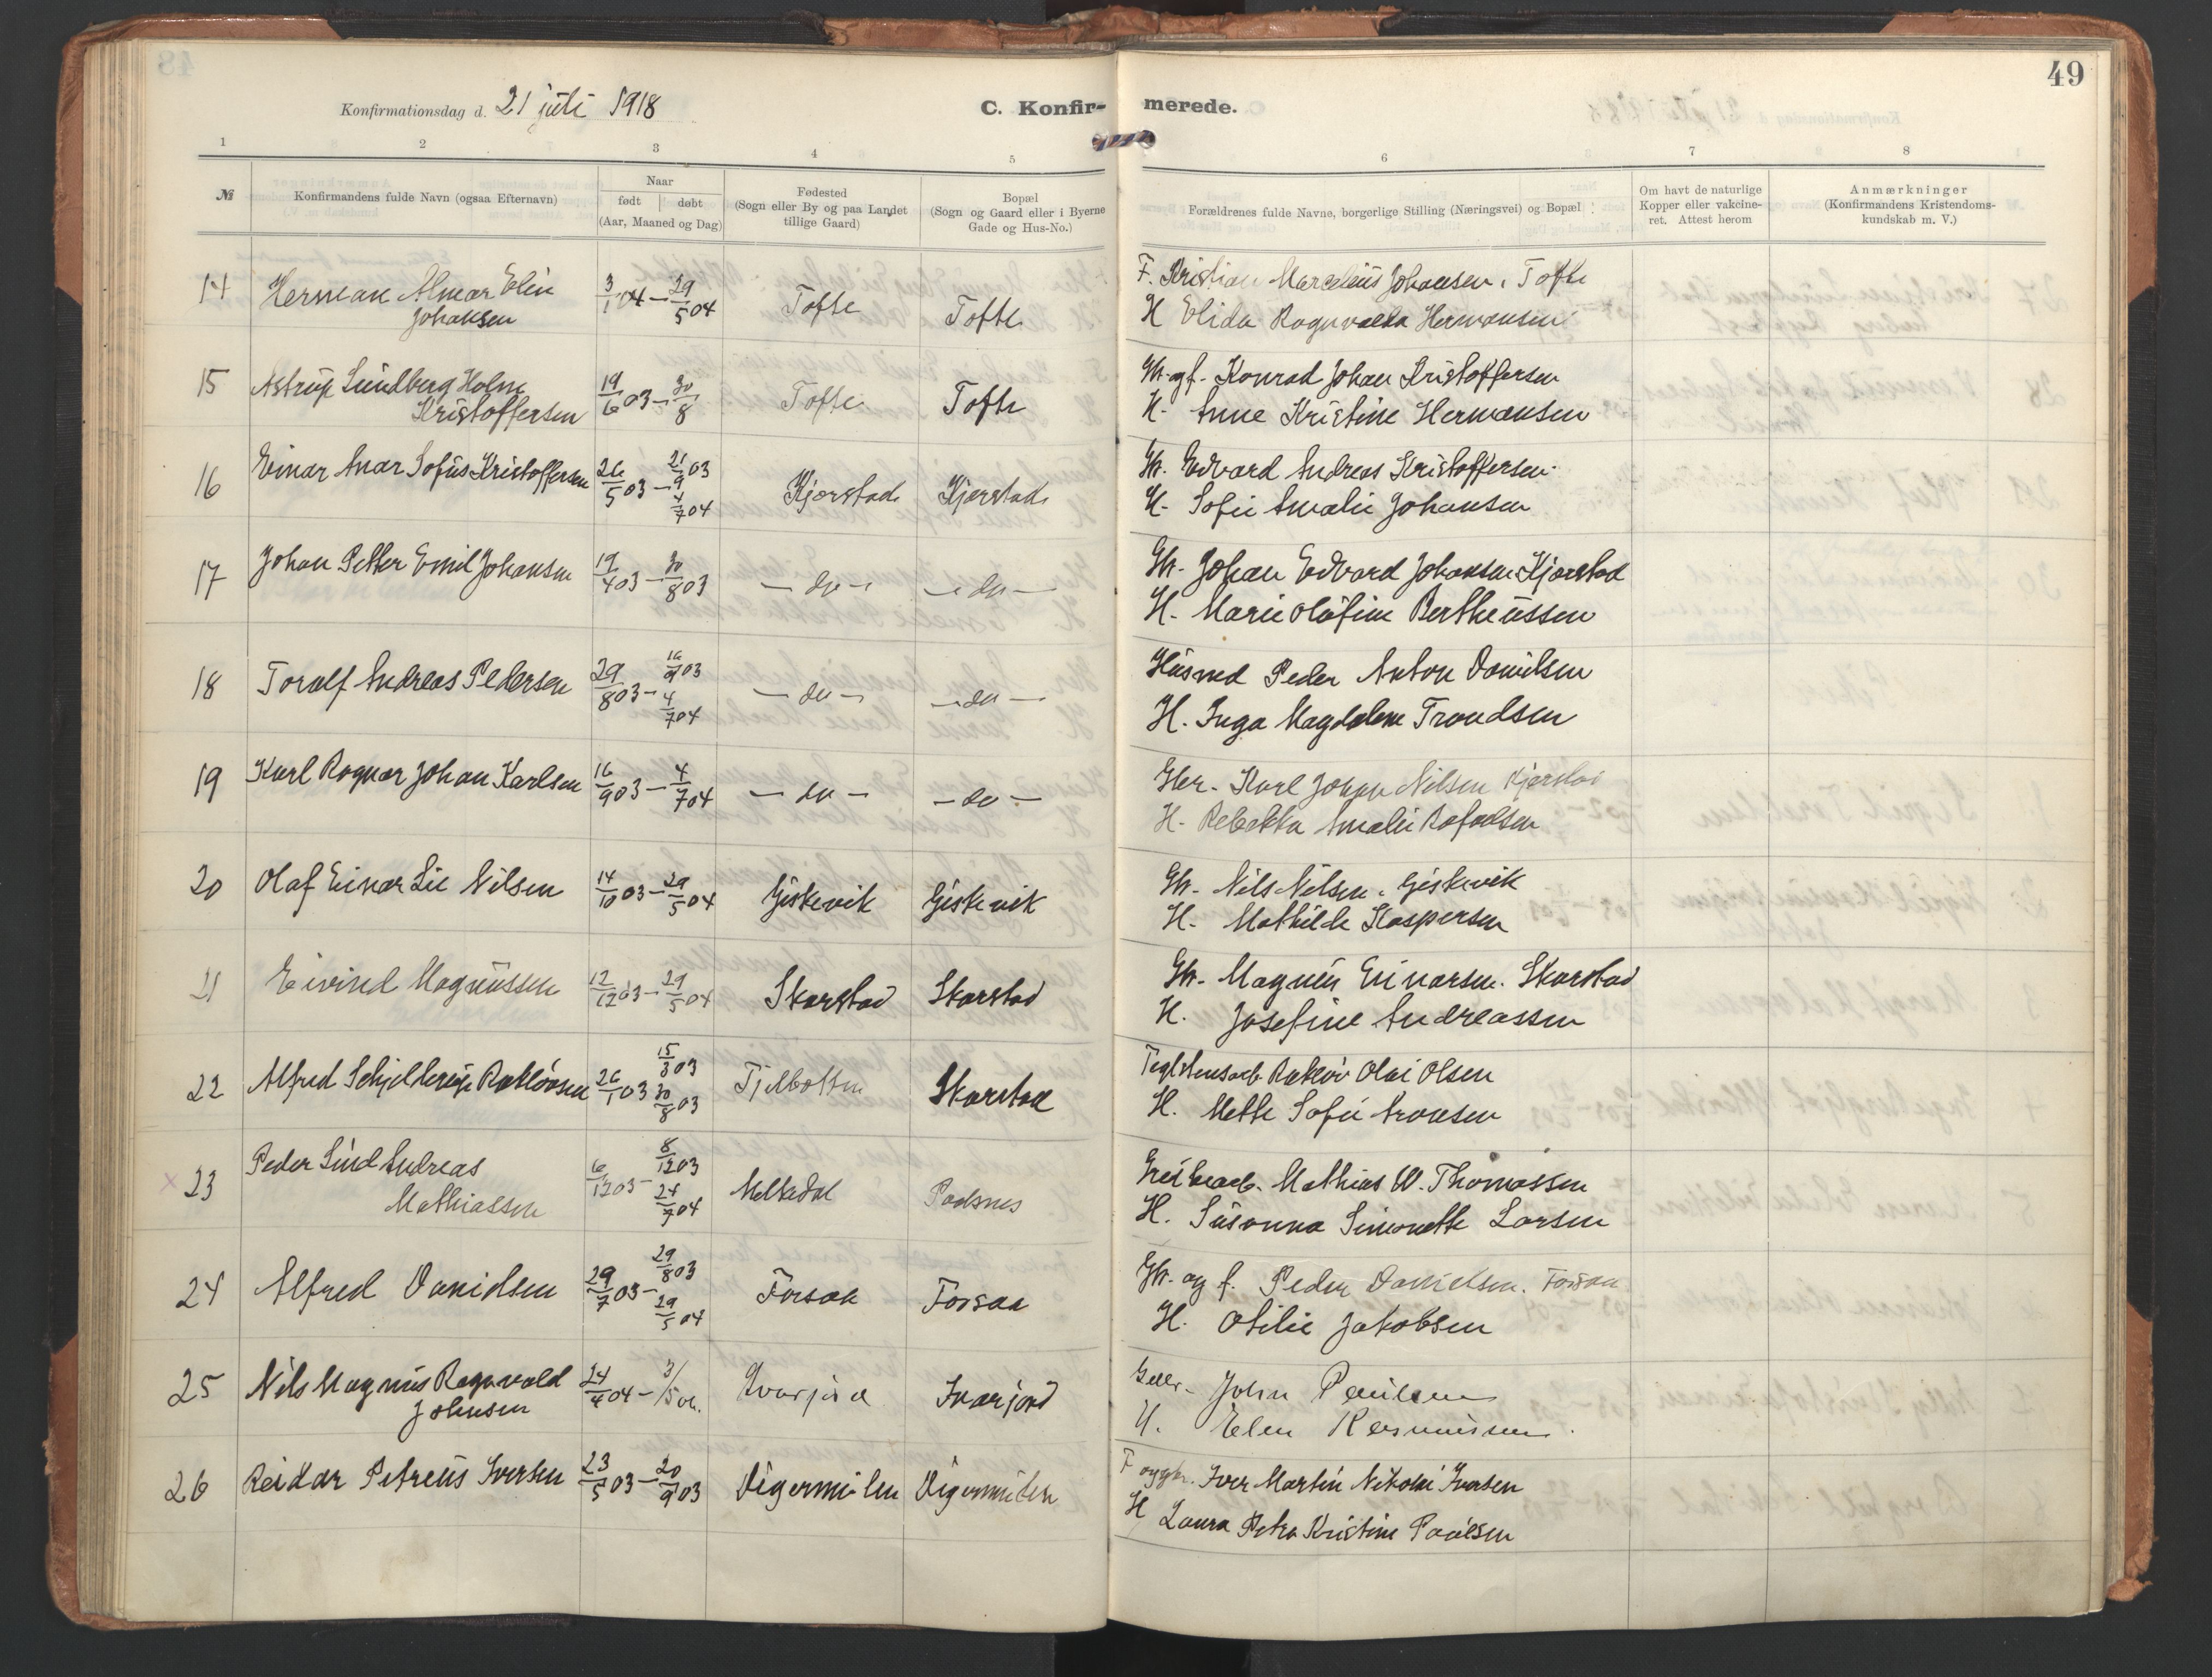 49
Konfirmationsdag d. 21 juli 1918
C. Konfir- merede.
1 2 3 4 5 6 7 8
№ Konfirmandens fulde Navn (ogsaa Efternavn) Naar født døbt (Aar, Maaned og Dag) Fødested (Sogn eller By og paa Landet tillige Gaard) Bopæl (Sogn og Gaard eller i Byerne Gade og Hus-No.) Forældrenes fulde Navne, borgerlige Stilling (Næringsvei) og Bopæl Om havt de naturlige Kopper eller vakcineret. Attest herom Anmærkninger (Konfirmandens Kristendomskundskab m. V.)
14 Herman Almar Elin Johansen 3/1 04 – 29/5 04 Tofte Tofte F. Kristian Marcelius Johansen, Tofte
H Elida Ragnvalda Hermansen
15 Astrup Lundberg Holm Kristoffersen 19/6 03 – 30/8 Tofte Tofte Gb. og f. Konrad Johan Kristoffersen
H. Anne Kristine Hermansen
16 Einar Anar Sofus Kristoffersen 26/5 03 – 21/9 03 4/7 04 Kjørstad Kjørstad Gb. Edvard Andreas Kristoffersen
H. Sofie Amalie Johansen
17 Johan Petter Emil Johansen 19/4 03 – 30/8 03 – do – – do – Gb. Johan Edvard Johansen Kjørstad
H. Marie Olufine Bertheussen
18 Toralf Andreas Pedersen 29/8 03 – 16/9 03 4/7 04 – do – – do – Husmd Peder Anton Danielsen
H. Inga Magdalene Trondsen
19 Karl Ragnar Johan Karlsen 16/9 03 – 4/7 04 – do – – do – Gbr. Karl Johan Nilsen Kjørstad
H. Rebekka Amalie Rafaelsen
20 Olaf Einar Lie Nilsen 14/10 03 – 29/5 04 Giskevik Giskevik Gb. Nils Nilsen, Giskevik
H. Mathilde Kaspersen
21 Eivind Magnussen 12/12 03 – 29/5 04 Skarstad Skarstad Gb. Magnus Einarsen. Skarstad
H. Josefine Andreassen
22 Alfred Schjelderup Rekløvsen 26/1 03 15/3 03 30/8 03 Fjelbotten Skarstad Olai Olsen
H. Mette Sofie Aronsen
x 23 Peder Lind Andreas Mathiassen 6/12 03 – 8/12 03 24/7 04 Melkedal Mathias W. Thomassen
H. Susanna Simonette Larsen
24 Alfred Danielsen 29/7 03 – 29/8 03 29/5 04 Forsaa Forsaa Gb. og f. Peder Danielsen. Forsaa
H. Otilie Jakobsen
25 Nils Magnus Ragnvald Johnsen 24/4 04 – Ivarjord Ivarjord John Paulsen
H. Elen Rasmussen
26 Reidar Petreus Iversen 23/5 03 – 20/9 03 Digermulen Digermulen F og gbr. Iver Martin Nikolai Iversen
H Laura Petra Kristine Paulsen